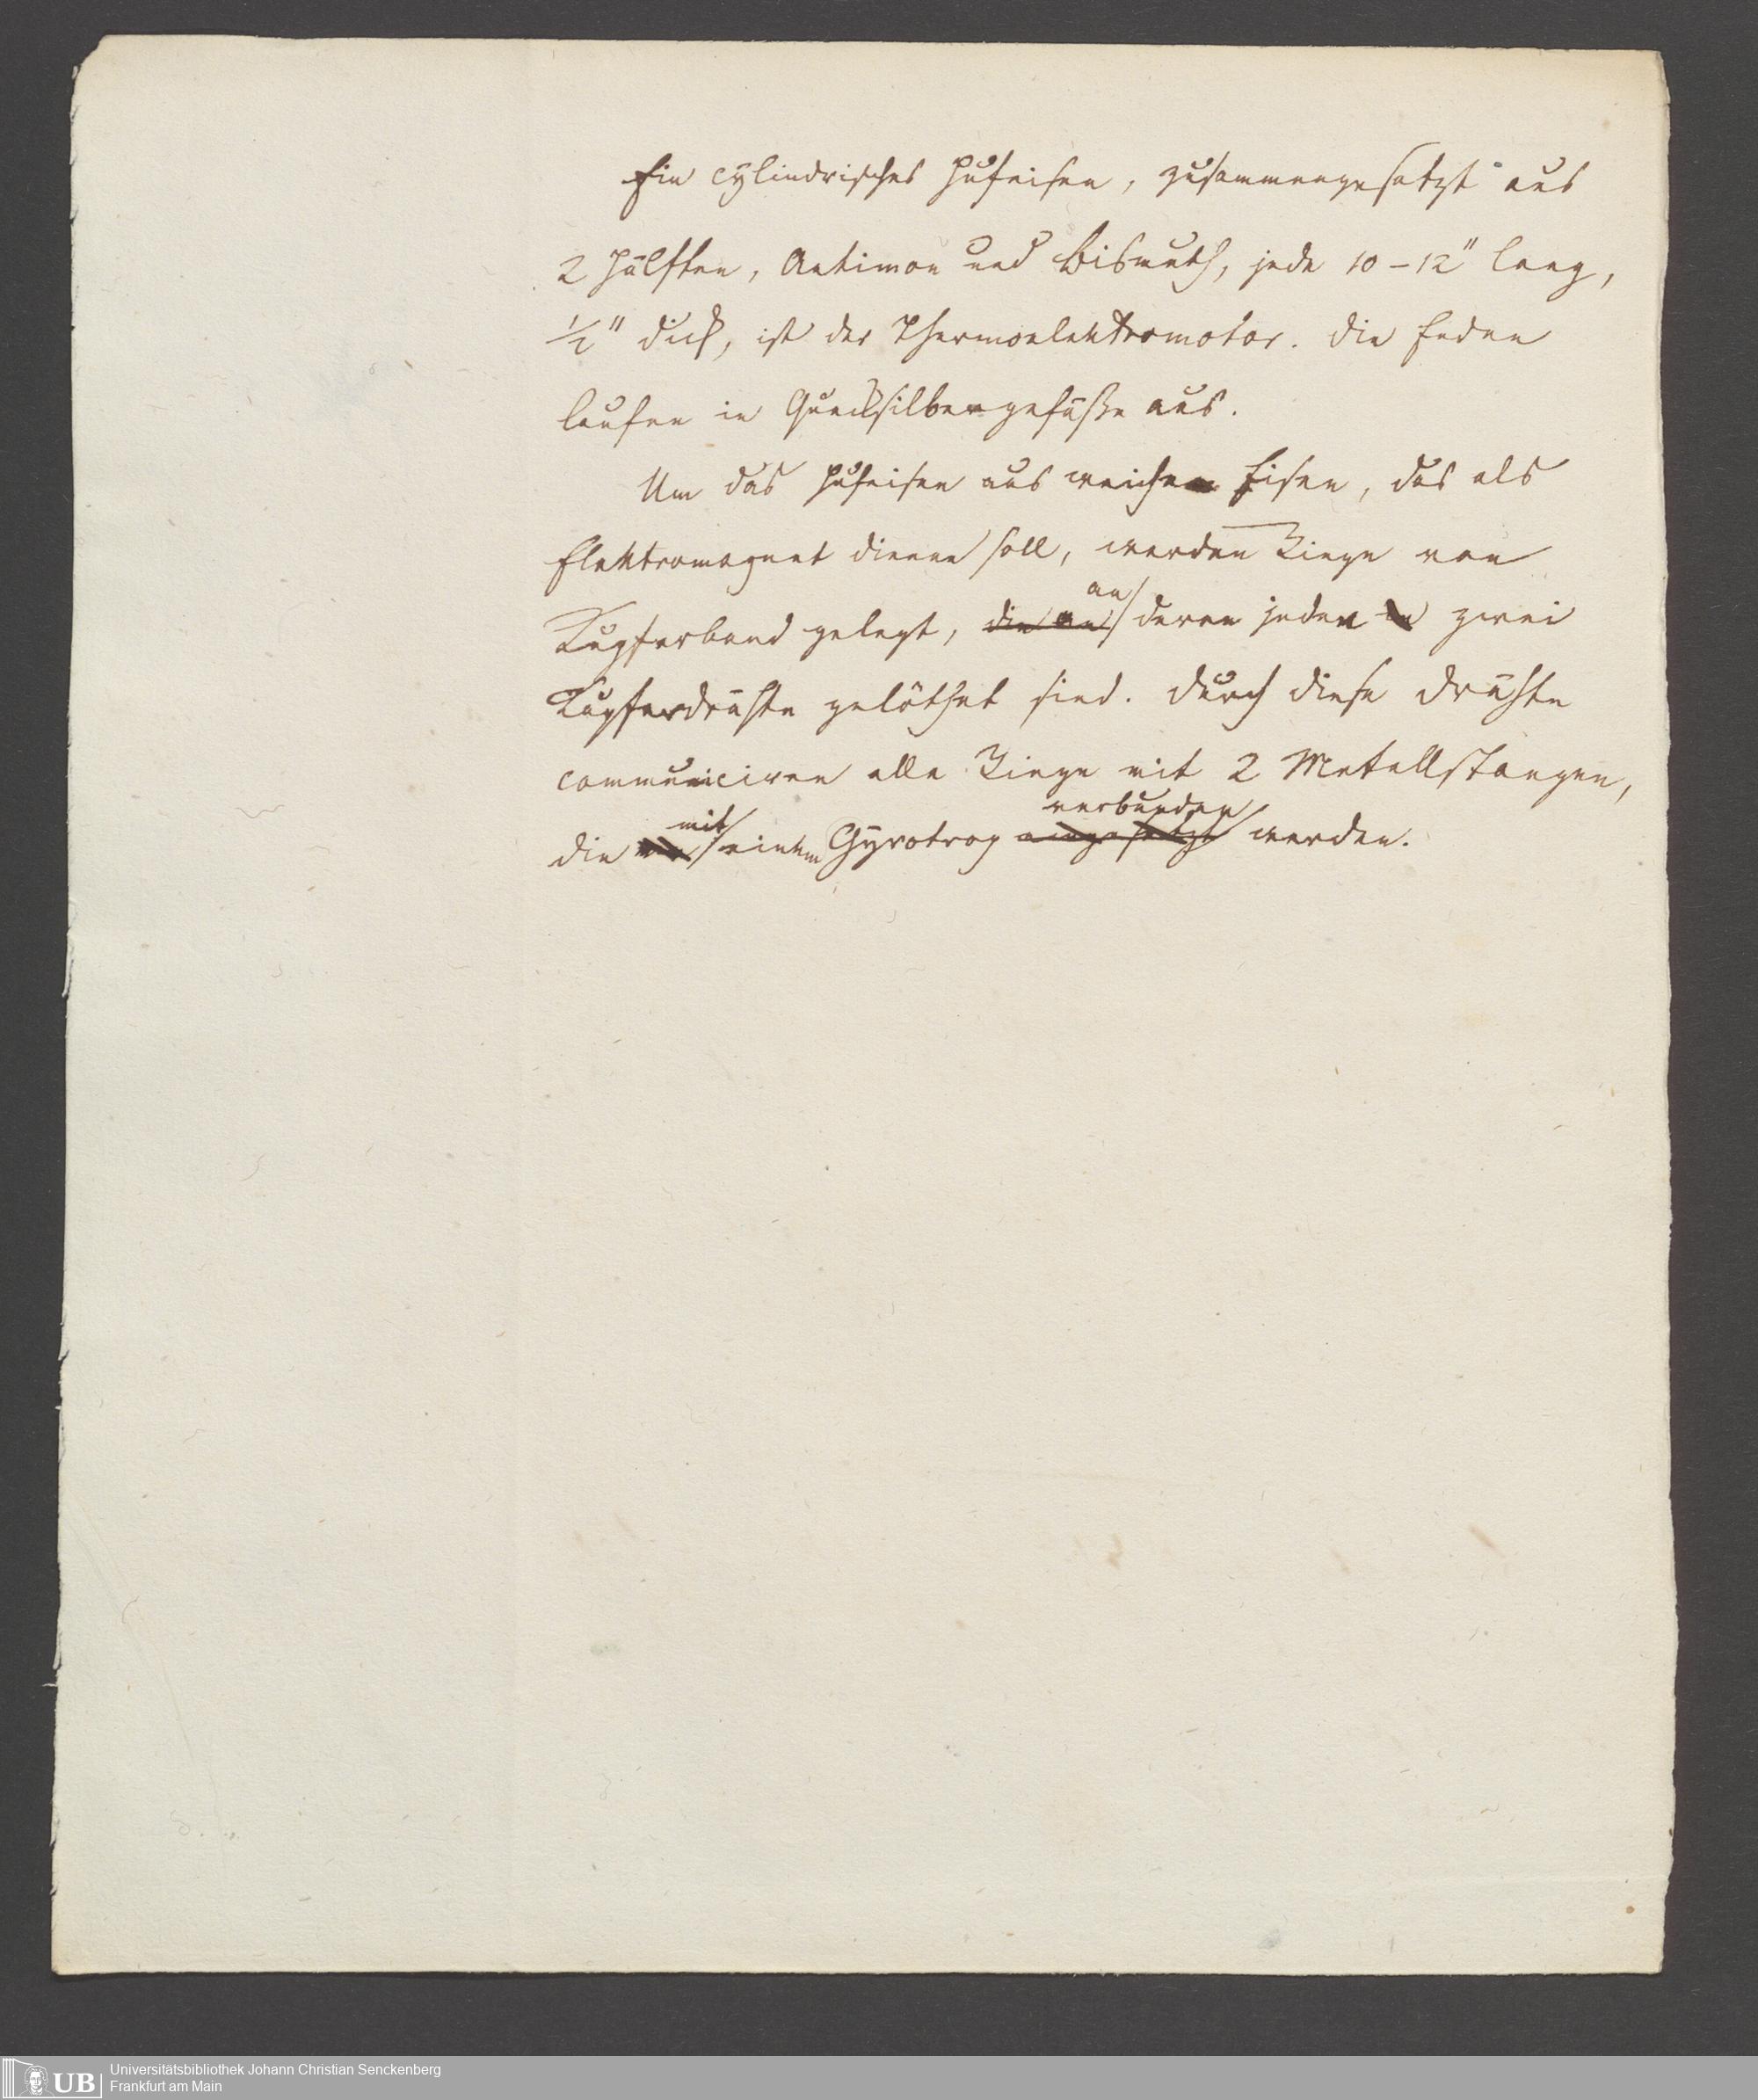 Ein cylindrisches Hufeisen, zusammengesetzt aus
2 Hälften, Antimon und Bismuth, jede 10–12" lang,
½" dick, ist der Thermoelektromotor. Die Enden
laufen in Quecksilbergefäße aus.
Um das Hufeisen aus weichen Eisen, das als
Elektromagnet dienen soll, werden Ringe von
an
Kupferband gelegt, die an deren jeden zwei
Kupferdrähte gelöthet sind. Durch diese Drähte
communiciren alle Ringe mit 2 Metallstangen,
mit verbunden
die einem Gyrotrop eingesetzt werden.
UB Universitätsbibliothek Johann Christian Senckenberg
Frankfurt am Main